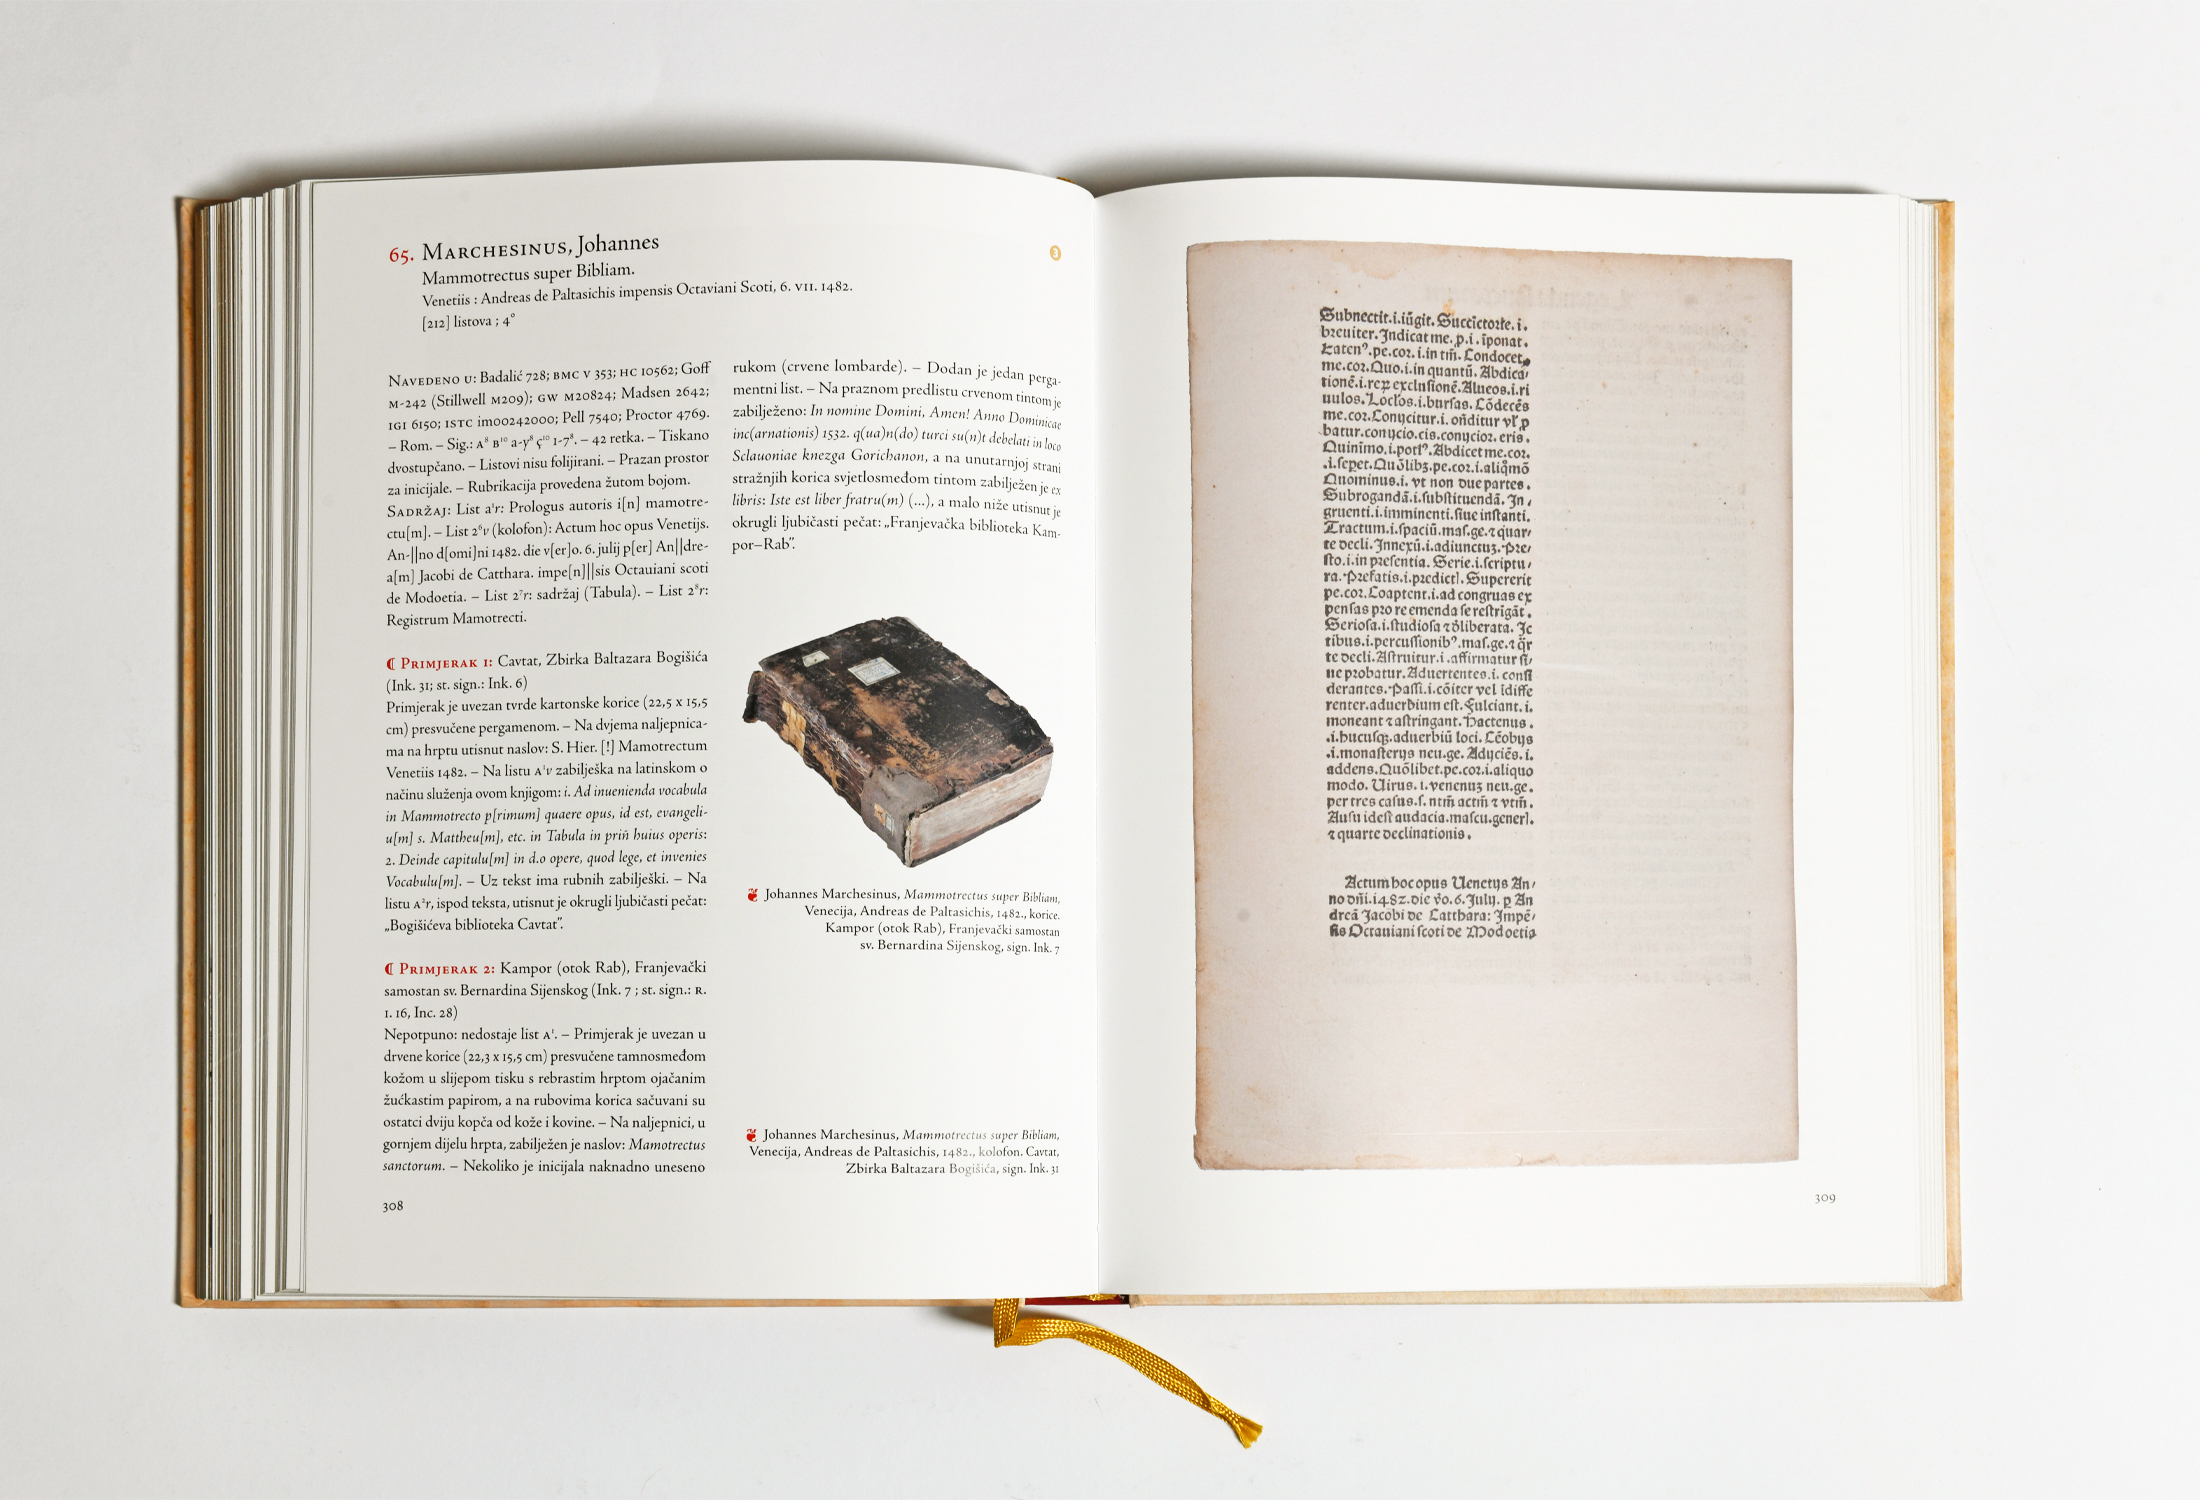 65. Marchesinus, Johannes
Mammotrectus super Bibliam.
Venetiis : Andreas de Paltasichis impensis Octaviani Scoti, 6. VII. 1482.
[212] listova ; 4°
3
Navedeno u: Badalić 728; BMC V 353; HC 10562; Goff
M-242 (Stillwell M209); GW M20824; Madsen 2642;
IGI 6150; ISTC im00242000; Pell 7540; Proctor 4769.
– Rom. – Sig.: A⁸ B¹⁰ a-y⁸ ç¹⁰ 1-7⁸. – 42 retka. – Tiskano
dvostupčano. – Listovi nisu folijirani. – Prazan prostor
za inicijale. – Rubrikacija provedena žutom bojom.
Sadržaj: List a¹r: Prologus autoris i[n] mamotre-
ctu[m]. – List 2⁶v (kolofon): Actum hoc opus Venetijs.
An-||no d[omi]ni 1482. die v[er]o. 6. julij p[er] An||dre-
a[m] Jacobi de Catthara. impe[n]||sis Octauiani scoti
de Modoetia. – List 2⁷r: sadržaj (Tabula). – List 2⁸r:
Registrum Mamotrecti.
¶ Primjerak 1: Cavtat, Zbirka Baltazara Bogišića
(Ink. 31; st. sign.: Ink. 6)
Primjerak je uvezan tvrde kartonske korice (22,5 x 15,5
cm) presvučene pergamenom. – Na dvjema naljepnica-
ma na hrptu utisnut naslov: S. Hier. [!] Mamotrectum
Venetiis 1482. – Na listu A¹v zabilješka na latinskom o
načinu služenja ovom knjigom: i. Ad inuenienda vocabula
in Mammotrecto p[rimum] quaere opus, id est, evangeli-
u[m] s. Mattheu[m], etc. in Tabula in priñ huius operis:
2. Deinde capitulu[m] in d.o opere, quod lege, et invenies
Vocabulu[m]. – Uz tekst ima rubnih zabilješki. – Na
listu A²r, ispod teksta, utisnut je okrugli ljubičasti pečat:
„Bogišićeva biblioteka Cavtat”.
¶ Primjerak 2: Kampor (otok Rab), Franjevački
samostan sv. Bernardina Sijenskog (Ink. 7 ; st. sign.: R.
I. 16, Inc. 28)
Nepotpuno: nedostaje list A¹. – Primjerak je uvezan u
drvene korice (22,3 x 15,5 cm) presvučene tamnosmeđom
kožom u slijepom tisku s rebrastim hrptom ojačanim
žućkastim papirom, a na rubovima korica sačuvani su
ostatci dviju kopča od kože i kovine. – Na naljepnici, u
gornjem dijelu hrpta, zabilježen je naslov: Mamotrectus
sanctorum. – Nekoliko je inicijala naknadno uneseno
308
rukom (crvene lombarde). – Dodan je jedan perga-
mentni list. – Na praznom predlistu crvenom tintom je
zabilježeno: In nomine Domini, Amen! Anno Dominicae
inc(arnationis) 1532. q(ua)n(do) turci su(n)t debelati in loco
Sclauoniae knezga Gorichanon, a na unutarnjoj strani
stražnjih korica svjetlosmeđom tintom zabilježen je ex
libris: Iste est liber fratru(m) (...), a malo niže utisnut je
okrugli ljubičasti pečat: „Franjevačka biblioteka Kam-
por–Rab”.
Johannes Marchesinus, Mammotrectus super Bibliam,
Venecija, Andreas de Paltasichis, 1482., korice.
Kampor (otok Rab), Franjevački samostan
sv. Bernardina Sijenskog, sign. Ink. 7
Johannes Marchesinus, Mammotrectus super Bibliam,
Venecija, Andreas de Paltasichis, 1482., kolofon. Cavtat,
Zbirka Baltazara Bogišića, sign. Ink. 31
Subnectit.i.iũgit. Succĩctorie.i.
breuiter. Indicat me.p.i.ĩponat.
me.cor.Quo.i.in quantũ. Abdica/
tionẽ.i. exclusionẽ.Alueos.i.ri
uulos. Loc̃los.i.bursas. Cõdecẽs
me.cor.Conijcitur.i. oñditur
batur.conijcio.cis.conijcior. eris.
Quinimo.i. Abdicet me.cor.
.i.sepet.Quõlibꝫ.pe.cor.i.aliq̃mõ
Quominus.i. vt non due partes.
Subrogandã.i.substituendã. In/
gruenti.i.imminenti.siue instanti.
Tractum.i.spaciũ.mas.ge.⁊ quar/
te decli. Innexũ.i.adiunctuꝫ. Pre/
sto.i.in presentia. Serie.i.scriptu/
ra. Prefatis.i.predictꝭ. Supererit
pe.cor. Coaptent.i.ad congruas ex
pensas pro re emenda se restrigãt.
Seriosa.i.studiosa ⁊ dliberata. Ic
tibus.i.percussionibꝰ.mas.ge.⁊ q̃r
te decli. Astruitur.i.affirmatur si/
ue probatur. Aduertentes.i. consi
derantes. Passi.i.cõiter vel ĩdiffe
renter.aduerbium est. Fulciant.i.
moneant ⁊ astringant. Hactenus.
.i.hucusqꝫ.aduerbiũ loci. Cẽobijs
.i.monasterijs neu.ge. Adijciẽs.i.
addens. Quõlibet.pe.cor.i.aliquo
modo. Uirus.i.venenuꝫ neu.ge.
per tres casus.s. ntm̃ actm̃ ⁊ vtm̃.
Ausu idest audacia.mascu.generꝭ.
⁊ quarte declinationis.
Actum hoc opus Uenetijs An/
no dñi.1482.die ṽo.6.Julij. p An
dreã Jacobi de Catthara: Impẽ/
sis Octauiani scoti de Modoetia
309